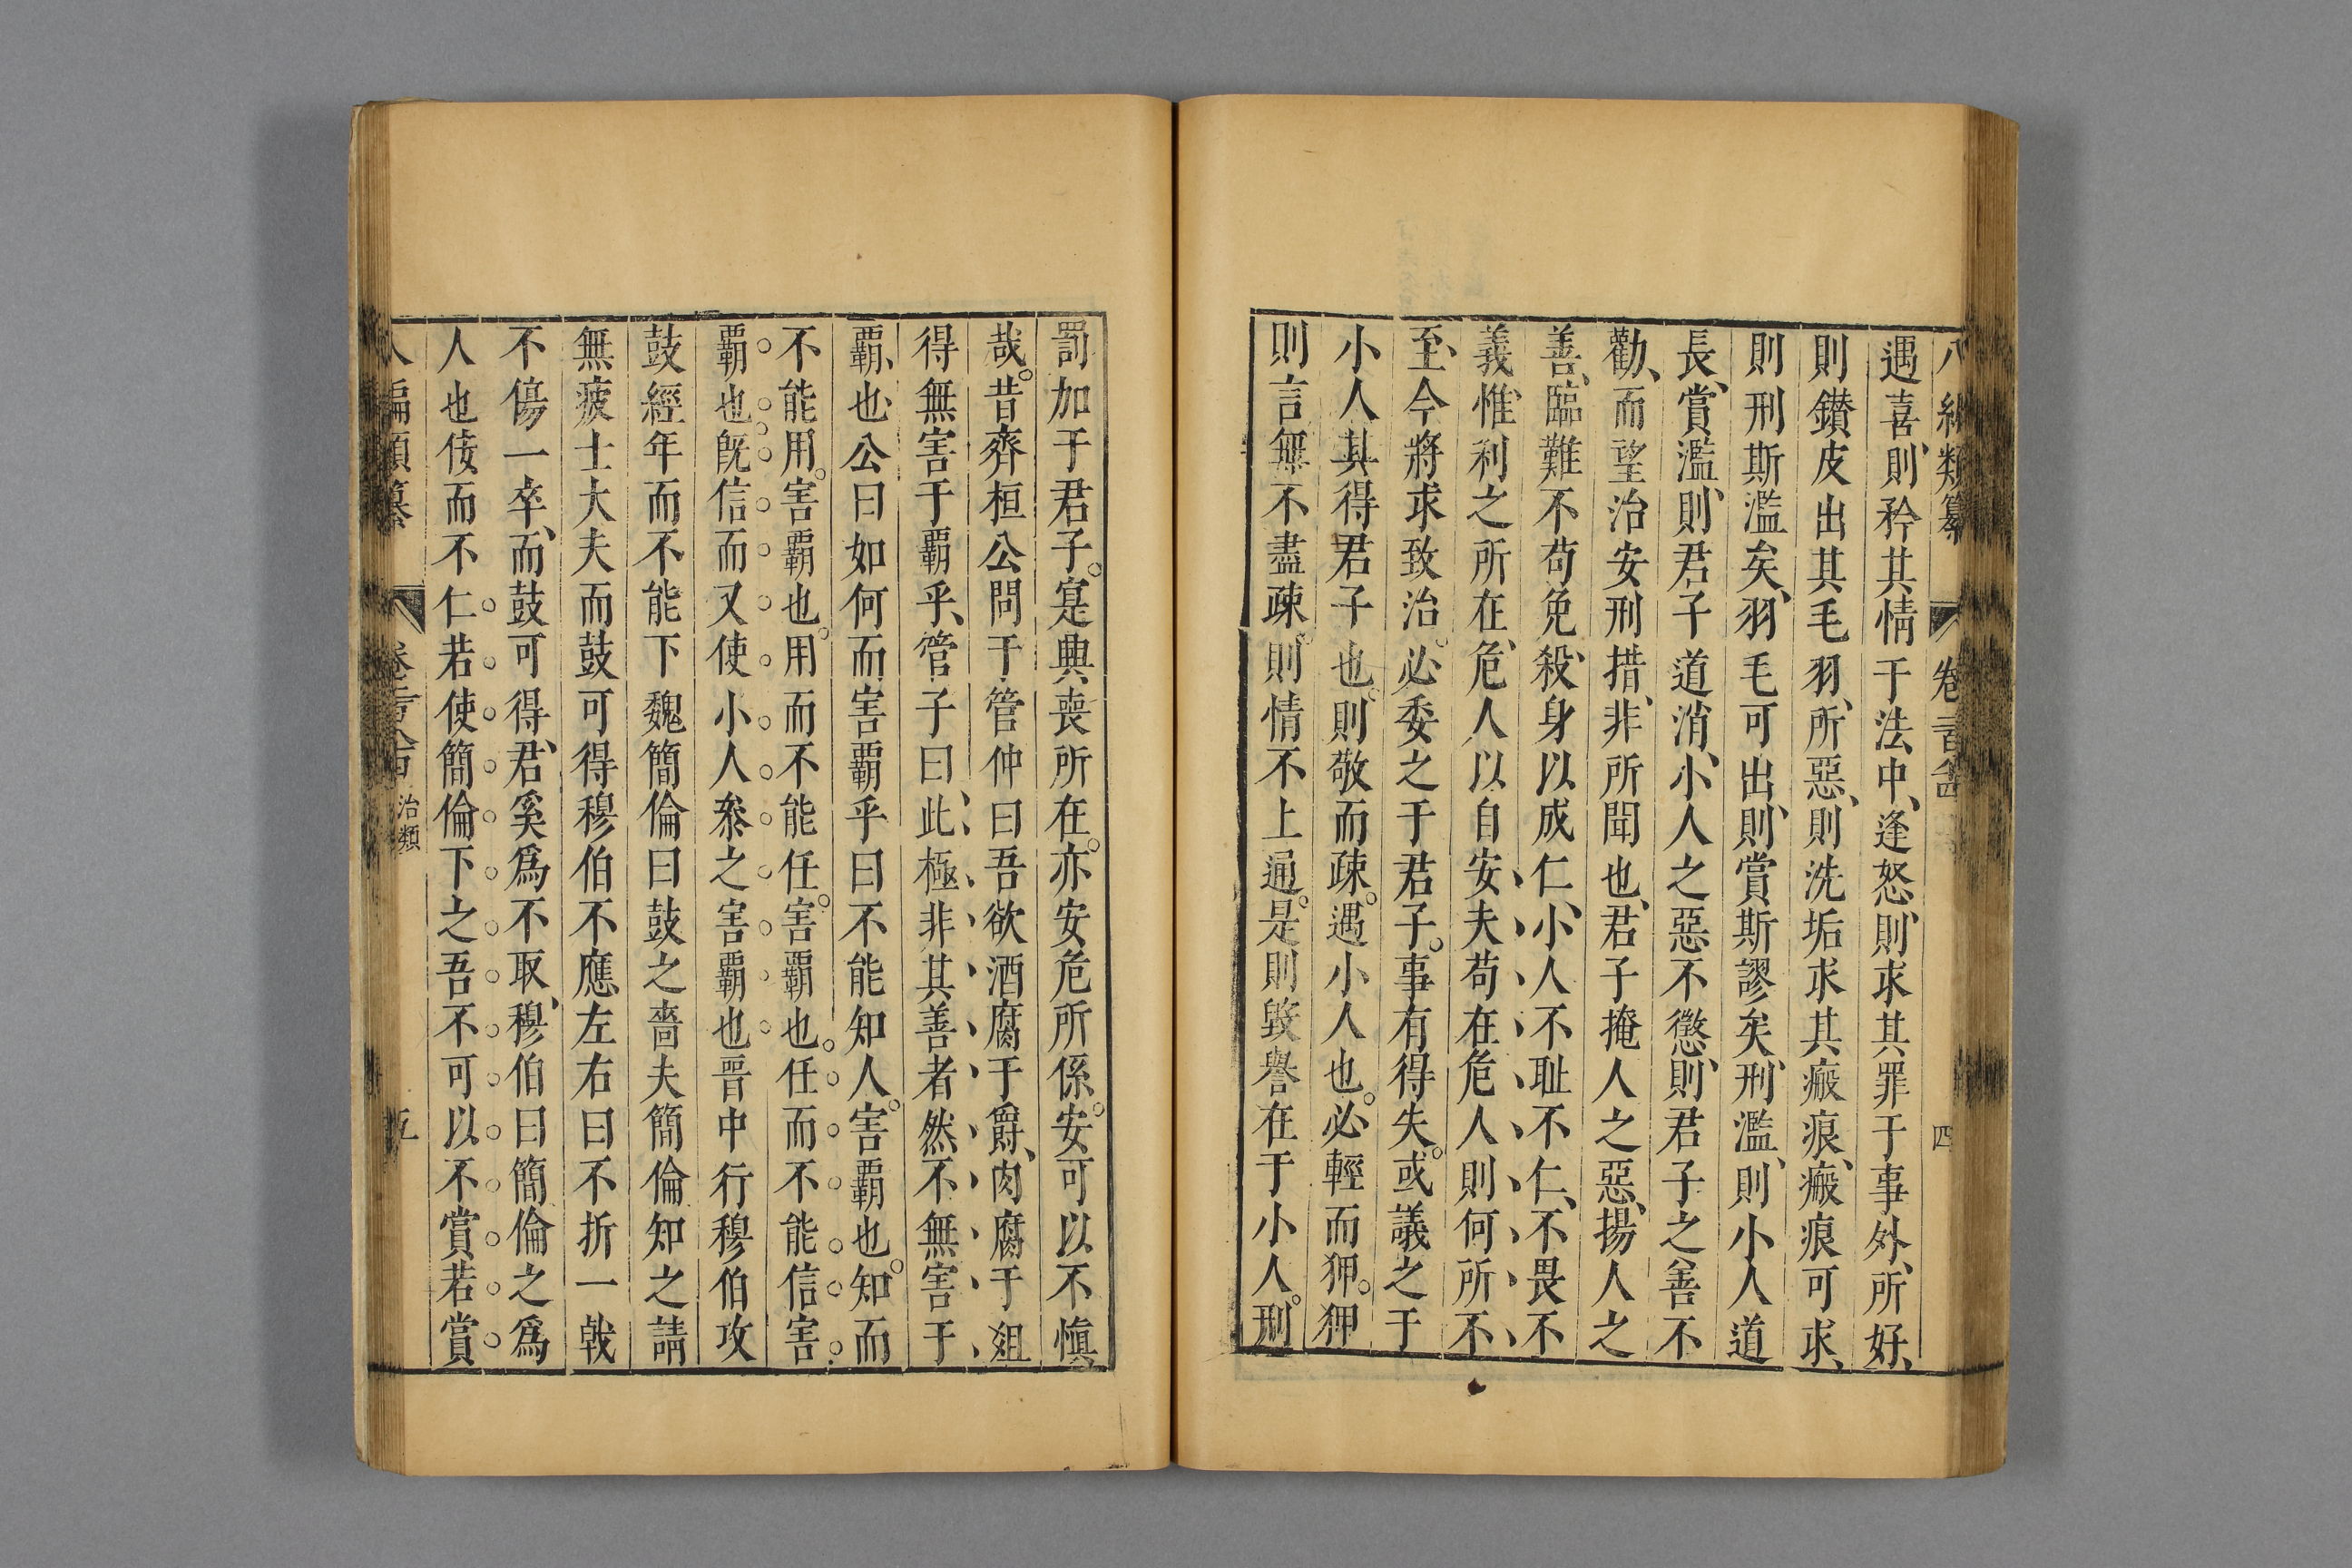 八編類纂 卷 四
遇喜則矜其情于法中、逢怒、則求其罪于事外、所好、
則鑚皮出其毛羽、所惡、則洗垢求其瘢痕、瘢痕可求、
則刑斯濫矣、羽毛可出、則賞斯謬矣、刑濫、則小人道
長、賞濫、則君子道消、小人之惡不懲、則君子之善不
勸、而望治安刑措、非所聞也、君子掩人之惡、揚人之
善、臨難不苟免、殺身以成仁、小人不耻不仁、不畏不
義、惟利之所在、危人以自安、夫苟在危人則何所不
至、今將求致治。必委之于君子。事有得失。或議之于
小人其得君子也。則敬而疎。遇小人也。必輕而狎。狎
則言無不盡疎。則情不上通。是則毀譽在于小人。刑
罰加于君子。寔興喪所在。亦安危所係。安可以不愼
哉。昔齊桓公問于管仲曰吾欲酒腐于爵、肉腐于俎
得無害于覇乎、管子曰此極非其善者然不無害于
覇、也、公曰如何而害覇乎曰不能知人。害覇也。知而
不能用。害覇也。用而不能任。害覇也。任而不能信害
覇也旣信而又使小人叅之害覇也晋中行穆伯攻
鼓經年而不能下魏簡倫曰鼓之嗇夫簡倫知之請
無疲士大夫而鼓可得穆伯不應左右曰不折一戟
不傷一卒、而鼓可得、君奚爲不取、穆伯曰簡倫之爲
人也佞而不仁若使簡倫下之吾不可以不賞若賞
八編類纂 卷 治類 五